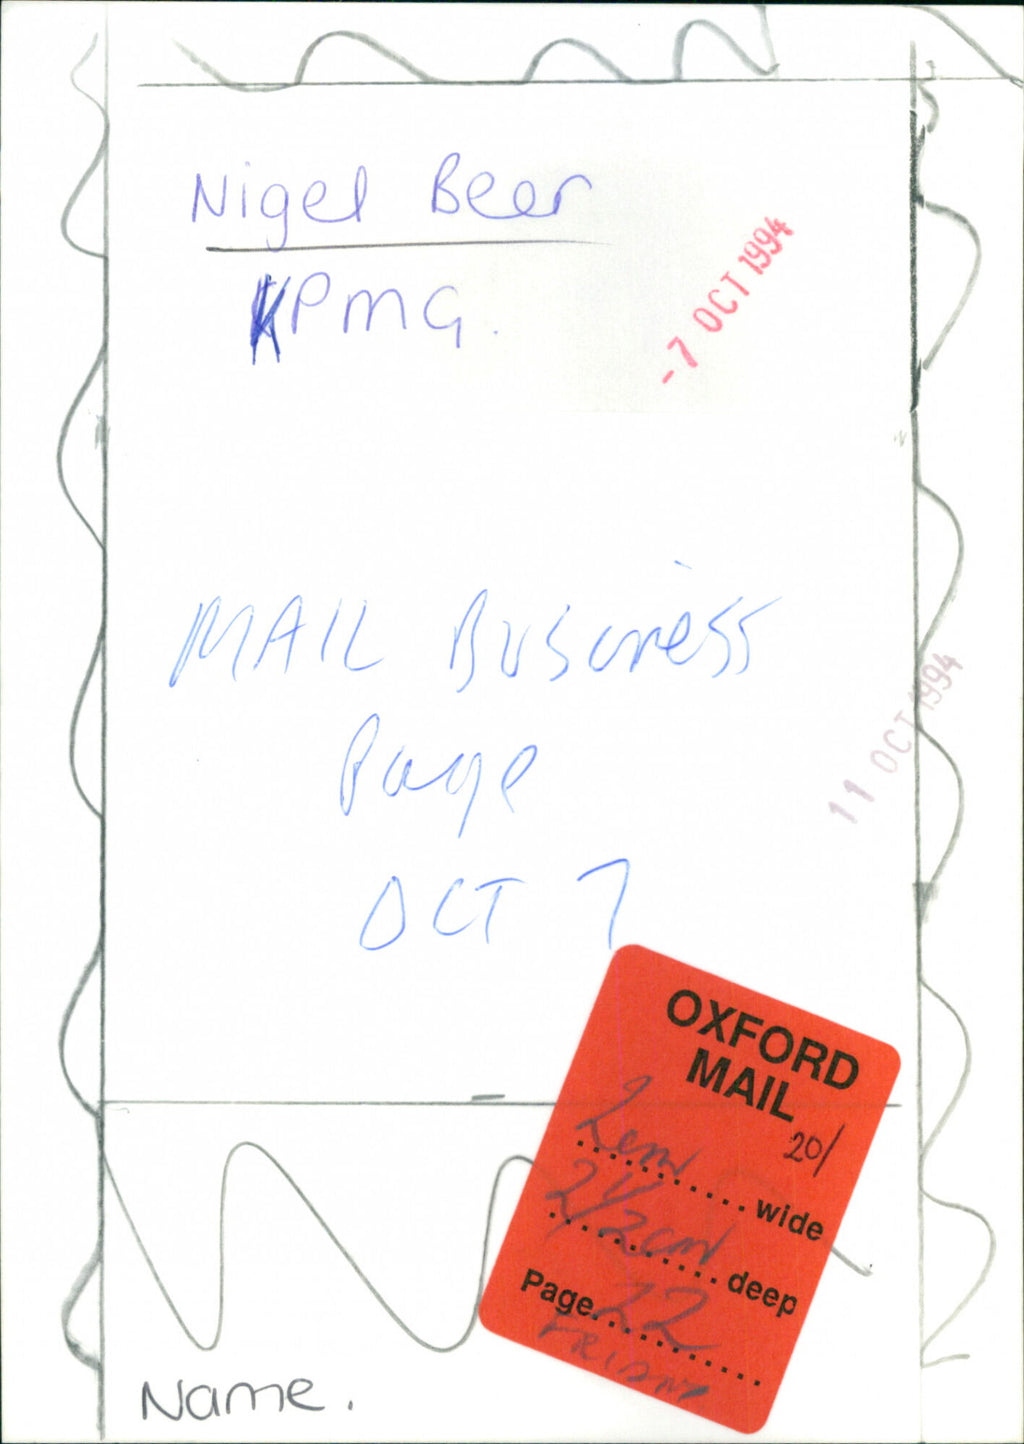 Nigel Beer
KPMG.
-7 OCT 1994
MAIL Business
Page
OCT 7
11 OCT 1994
OXFORD
MAIL
20/
2cm wide
2 1/2cm deep
Page 22
FRIDAY
Name.